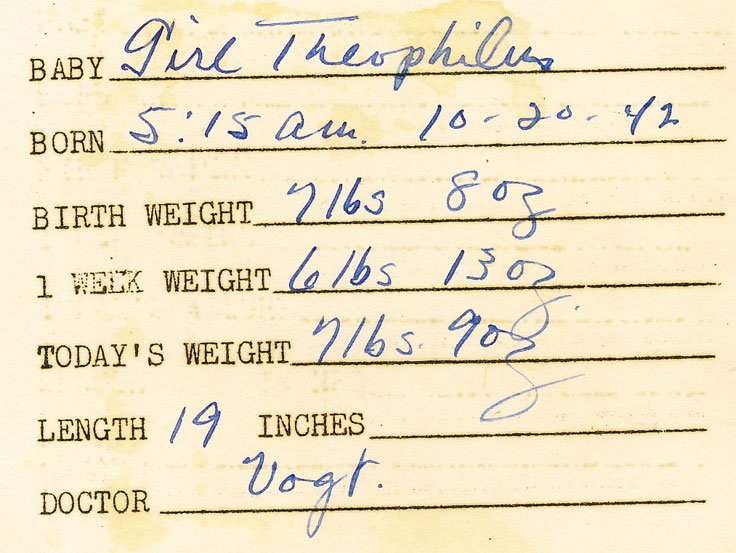 BABY Girl Theophilus
BORN 5:15 am. 10-20-42
BIRTH WEIGHT 7 lbs 8 oz
1 WEEK WEIGHT 6 lbs 13 oz.
TODAY'S WEIGHT 7 lbs. 9 oz
LENGTH 19 INCHES
DOCTOR Vogt.